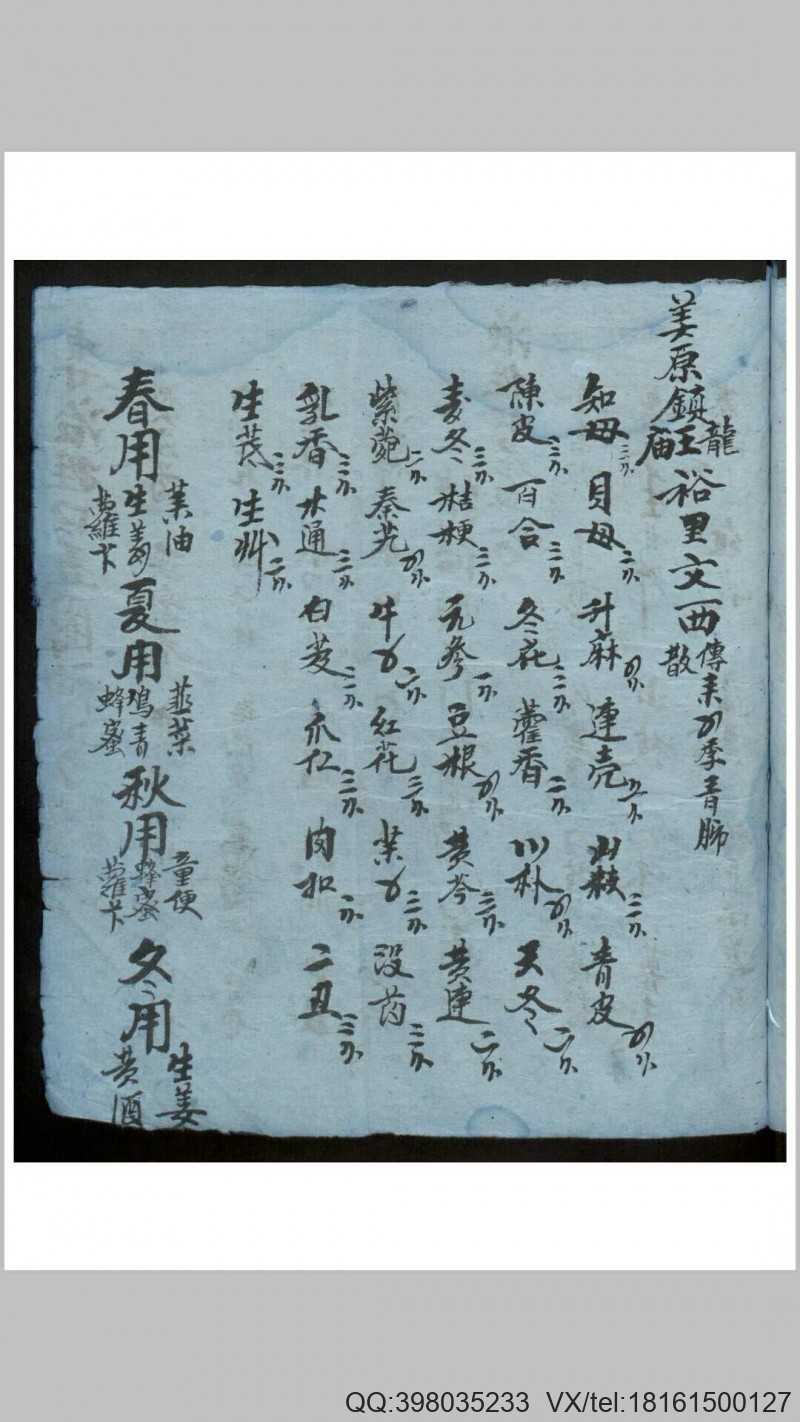 姜原鎮龍王庙裕里文西傳来四季青肺散
知母三分 貝母二分 升麻四分 連壳二分 山梔三分 青皮四分
陳皮三分 百合三分 冬花三分 藿香二分 川朴四分 天冬二分
麦冬三分 桔梗三分 元參一分 豆根四分 黄芩三分 黄連二分
紫菀二分 秦艽四分 牛 二分 紅花三分 三分 没药三分
乳香三分 木通三分 白芨二分 瓜仁三分 肉扣一分 二丑三分
生芪三分 生艸二分
春用 油 生姜 蘿卜 夏用 韮菜 鸡青 蜂蜜 秋用 童便 蜂蜜 蘿卜 冬用 生姜 黄酒
QQ:398035233 VX/tel:18161500127